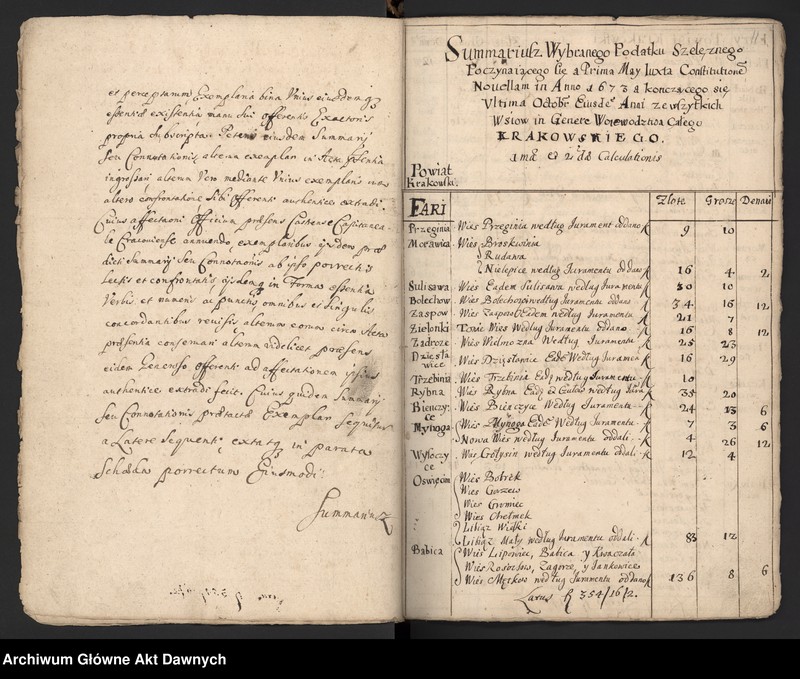 et perceptarum Exemplaria bina Unius eiusdemq3
essentiae existentia manu sui offerentis Exactoris
propria subscripta Petens eiusdem Summarij
seu Connotationis alterum exemplar in Acta praesentia
ingrossari alterum Vero mediante Unius exemplaris cum
altero confrontatione sibi offerenti authentice extradi.
Cuius affectationi Officium praesens Castrense Capitanea-
le Cracouiense annuendo, exemplaribus eiusdem prae
dicti Summarij seu Connotationis ab ipso porrectis
lectis et confrontatis eisdemq in Formae essentia
Verbis et numeris ac punctis omnibus et singulis
concordantibus reuisis, alterum eorum circa Acta
praesentia conseruari alterum videlicet praesens
eidem Generoso offerenti ad affectationem ipsius
authentice extradi fecit. Cuius quidem Summarij
seu Connotationis praetactae Exemplar sequitur
a Latere sequenti extatq3 in parata
Scheda porrectum Eiusmodi
Summariusz
Summariusz Wybranego Podatku Szelężnego
Poczynaiącego się a Prima May Iuxta Constitutione
Nouellam in Anno 1673 a kończącego się
Ultima Octobr Eiusde Anni ze wszytkich
Wsiow in Genere Woiewodztwa Całego
KRAKOWSKIEGO.
1mae et 2dae Calculationis
Powiat
Krakowski.
FARI Złote Grosze Denari
Przeginia Wieś Przeginia według Jurament oddano 9 10
Morawica Wieś Broskwinia
Rudawa
Nielepice według Juramentu oddano 16 4 2
Sulisawa Wieś Eadem Sulisawa według Juramentu 30 10
Bolechow Wieś Bolechowice według Juramentu oddano 34 16 12
Zaspow Wieś Zaspow Eadem według Juramentu 21 7
Zielonki Taxie Wieś Według Juramentu oddano 16 8 12
Zadroże Wieś Wielmoża Według Juramentu 25 23
Dzieśła
wice Wieś Dzisławice Eade Według Juramen 16 29
Trzebinia Wieś Trzebinia Ead według Juramentu 10
Rybna Wieś Rybna Ead et Czułow według Jura 35 20
Bieńczy
ce Wieś Bieńczyce Według Juramentu 24 13 6
Mynoga Wieś Mynoga Eade Według Juramentu 7 3 6
Nowa Wieś według Juramentu oddali 4 26 12
Wysoczy
ce Wieś Gołyszin według Juramentu oddali 12 4
Oswięcim Wieś Bobrek
Wieś Gorzow
Wieś Gromiec
Wieś Chełmek
Libiąż Wielki
Libiąż Mały według Juramentu oddali 83 12
Babica Wieś Lipowiec, Babica y Kwaczała
Wieś Rosochow, Zagorze, y Jankowice
Wieś Mętkow według Juramentu oddano 136 8 6
Latus f 354/16/2.
Archiwum Główne Akt Dawnych